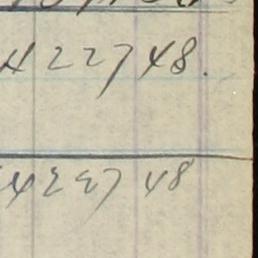 4227 48.
4227 48